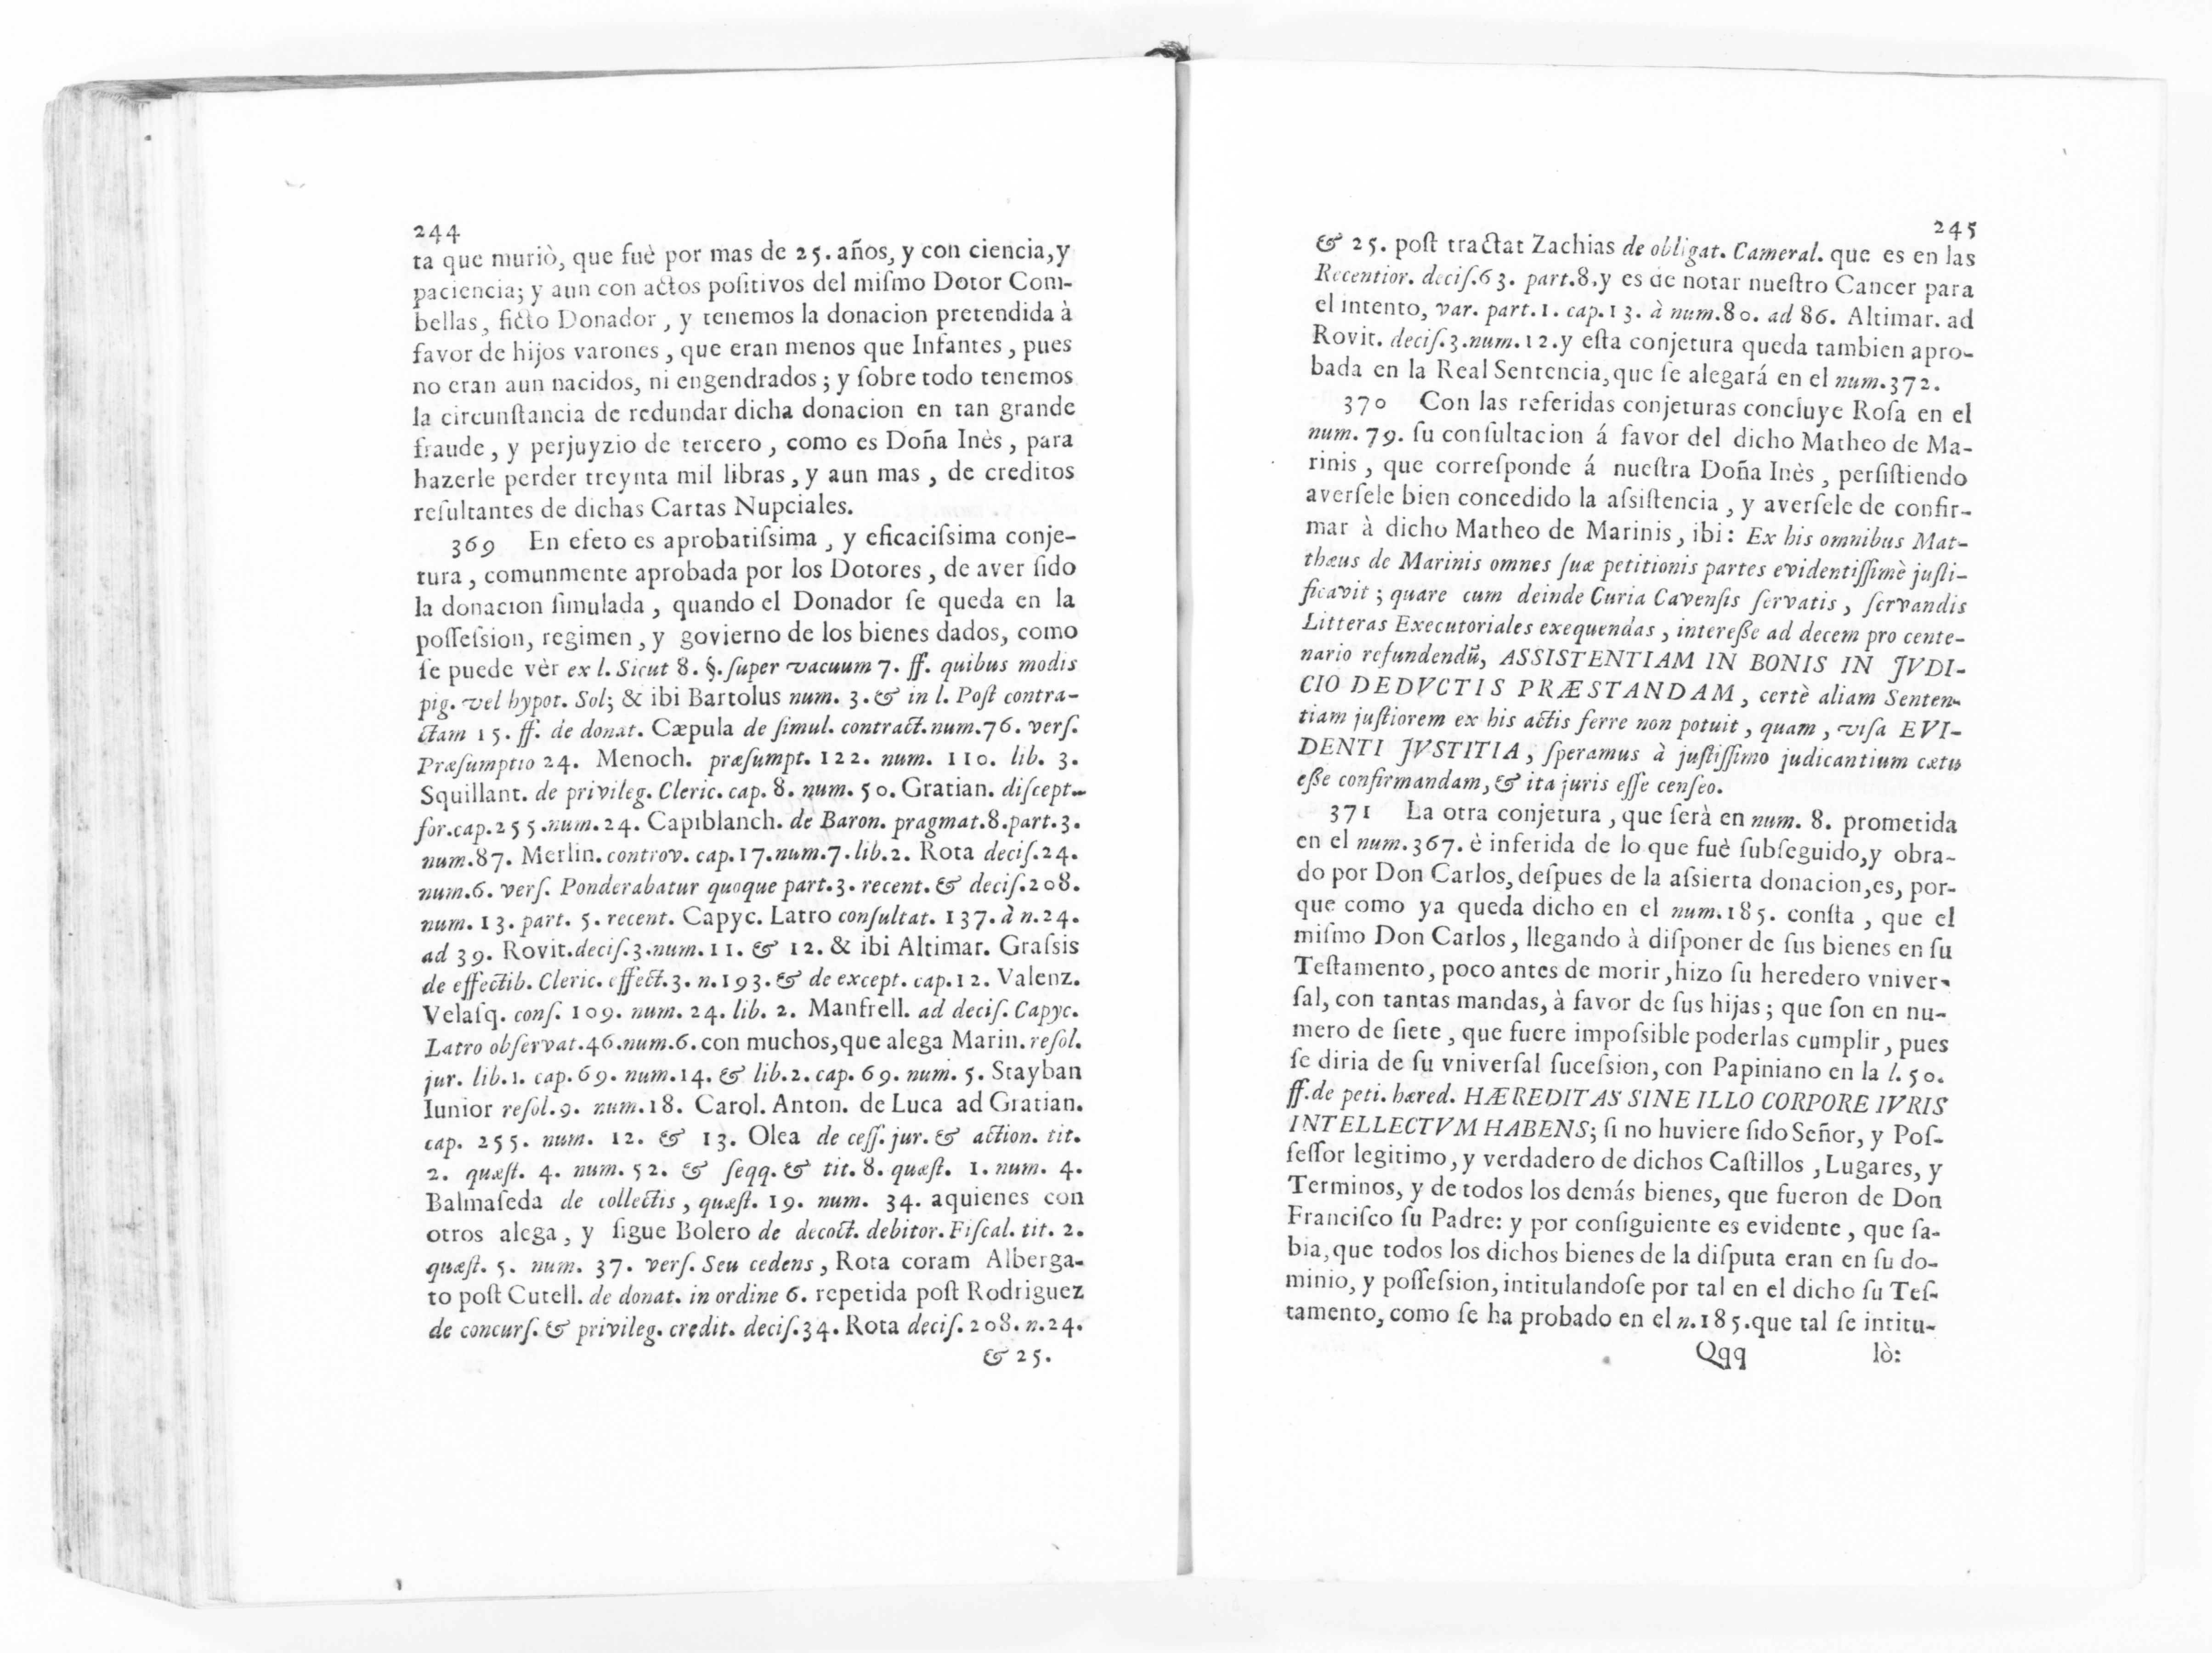 244
ta que muriò, que fuè por mas de 25. años, y con ciencia, y
paciencia; y aun con actos poſitivos del miſmo Dotor Com-
bellas, ficto Donador, y tenemos la donacion pretendida à
favor de hijos varones, que eran menos que Infantes, pues
no eran aun nacidos, ni engendrados; y ſobre todo tenemos
la circunſtancia de redundar dicha donacion en tan grande
fraude, y perjuyzio de tercero, como es Doña Inès, para
hazerle perder treynta mil libras, y aun mas, de creditos
reſultantes de dichas Cartas Nupciales.
369 En efeto es aprobatiſsima, y eficaciſsima conje-
tura, comunmente aprobada por los Dotores, de aver ſido
la donacion ſimulada, quando el Donador ſe queda en la
poſſeſsion, regimen, y govierno de los bienes dados, como
ſe puede vèr ex l. Sicut 8. §. ſuper vacuum 7. ff. quibus modis
pig. vel hypot. Sol; & ibi Bartolus num. 3. & in l. Poſt contra-
ctam 15. ff. de donat. Cæpula de ſimul. contract. num. 76. verſ.
Præſumptio 24. Menoch. præſumpt. 122. num. 110. lib. 3.
Squillant. de privileg. Cleric. cap. 8. num. 50. Gratian. diſcept-
for. cap. 255. num. 24. Capiblanch. de Baron. pragmat. 8. part. 3.
num. 87. Merlin. controv. cap. 17. num. 7. lib. 2. Rota deciſ. 24.
num. 6. verſ. Ponderabatur quoque part. 3. recent. & deciſ. 208.
num. 13. part. 5. recent. Capyc. Latro conſultat. 137. à n. 24.
ad 39. Rovit. deciſ. 3. num. 11. & 12. & ibi Altimar. Graſsis
de effectib. Cleric. effect. 3. n. 193. & de except. cap. 12. Valenz.
Velaſq. conſ. 109. num. 24. lib. 2. Manfrell. ad deciſ. Capyc.
Latro obſervat. 46. num. 6. con muchos, que alega Marin. reſol.
jur. lib. 1. cap. 69. num. 14. & lib. 2. cap. 69. num. 5. Stayban
Iunior reſol. 9. num. 18. Carol. Anton. de Luca ad Gratian.
cap. 255. num. 12. & 13. Olea de ceſſ. jur. & action. tit.
2. quæſt. 4. num. 52. & ſeqq. & tit. 8. quæſt. 1. num. 4.
Balmaſeda de collectis, quæſt. 19. num. 34. aquienes con
otros alega, y ſigue Bolero de decoct. debitor. Fiſcal. tit. 2.
quæſt. 5. num. 37. verſ. Seu cedens, Rota coram Alberga-
to poſt Cutell. de donat. in ordine 6. repetida poſt Rodriguez
de concurſ. & privileg. credit. deciſ. 34. Rota deciſ. 208. n. 24.
& 25.
245
& 25. poſt tractat Zachias de obligat. Cameral. que es en las
Recentior. deciſ. 63. part. 8. y es de notar nueſtro Cancer para
el intento, var. part. 1. cap. 13. à num. 80. ad 86. Altimar. ad
Rovit. deciſ. 3. num. 12. y eſta conjetura queda tambien apro-
bada en la Real Sentencia, que ſe alegará en el num. 372.
370 Con las referidas conjeturas concluye Roſa en el
num. 79. ſu conſultacion á favor del dicho Matheo de Ma-
rinis, que correſponde á nueſtra Doña Inès, perſiſtiendo
averſele bien concedido la aſsiſtencia, y averſele de confir-
mar à dicho Matheo de Marinis, ibi: Ex his omnibus Mat-
thæus de Marinis omnes ſuæ petitionis partes evidentiſſimè juſti-
ficavit; quare cum deinde Curia Cavenſis ſervatis, ſervandis
Litteras Executoriales exequendas, intereße ad decem pro cente-
nario refundendũ, ASSISTENTIAM IN BONIS IN JVDI-
CIO DEDVCTIS PRÆSTANDAM, certè aliam Senten-
tiam juſtiorem ex his actis ferre non potuit, quam, viſa EVI-
DENTI JVSTITIA, ſperamus à juſtiſſimo judicantium cætu
eße confirmandam, & ita juris eſſe cenſeo.
371 La otra conjetura, que ſerà en num. 8. prometida
en el num. 367. è inferida de lo que fuè ſubſeguido, y obra-
do por Don Carlos, deſpues de la aſsierta donacion, es, por-
que como ya queda dicho en el num. 185. conſta, que el
miſmo Don Carlos, llegando à diſponer de ſus bienes en ſu
Teſtamento, poco antes de morir, hizo ſu heredero vniver-
ſal, con tantas mandas, à favor de ſus hijas; que ſon en nu-
mero de ſiete, que fuere impoſsible poderlas cumplir, pues
ſe diria de ſu vniverſal ſuceſsion, con Papiniano en la l. 50.
ff. de peti. hæred. HÆREDITAS SINE ILLO CORPORE IVRIS
INTELLECTVM HABENS; ſi no huviere ſido Señor, y Poſ-
ſeſſor legitimo, y verdadero de dichos Caſtillos, Lugares, y
Terminos, y de todos los demás bienes, que fueron de Don
Franciſco ſu Padre: y por conſiguiente es evidente, que ſa-
bia, que todos los dichos bienes de la diſputa eran en ſu do-
minio, y poſſeſsion, intitulandoſe por tal en el dicho ſu Teſ-
tamento, como ſe ha probado en el n. 185. que tal ſe intitu-
Qqq lò: